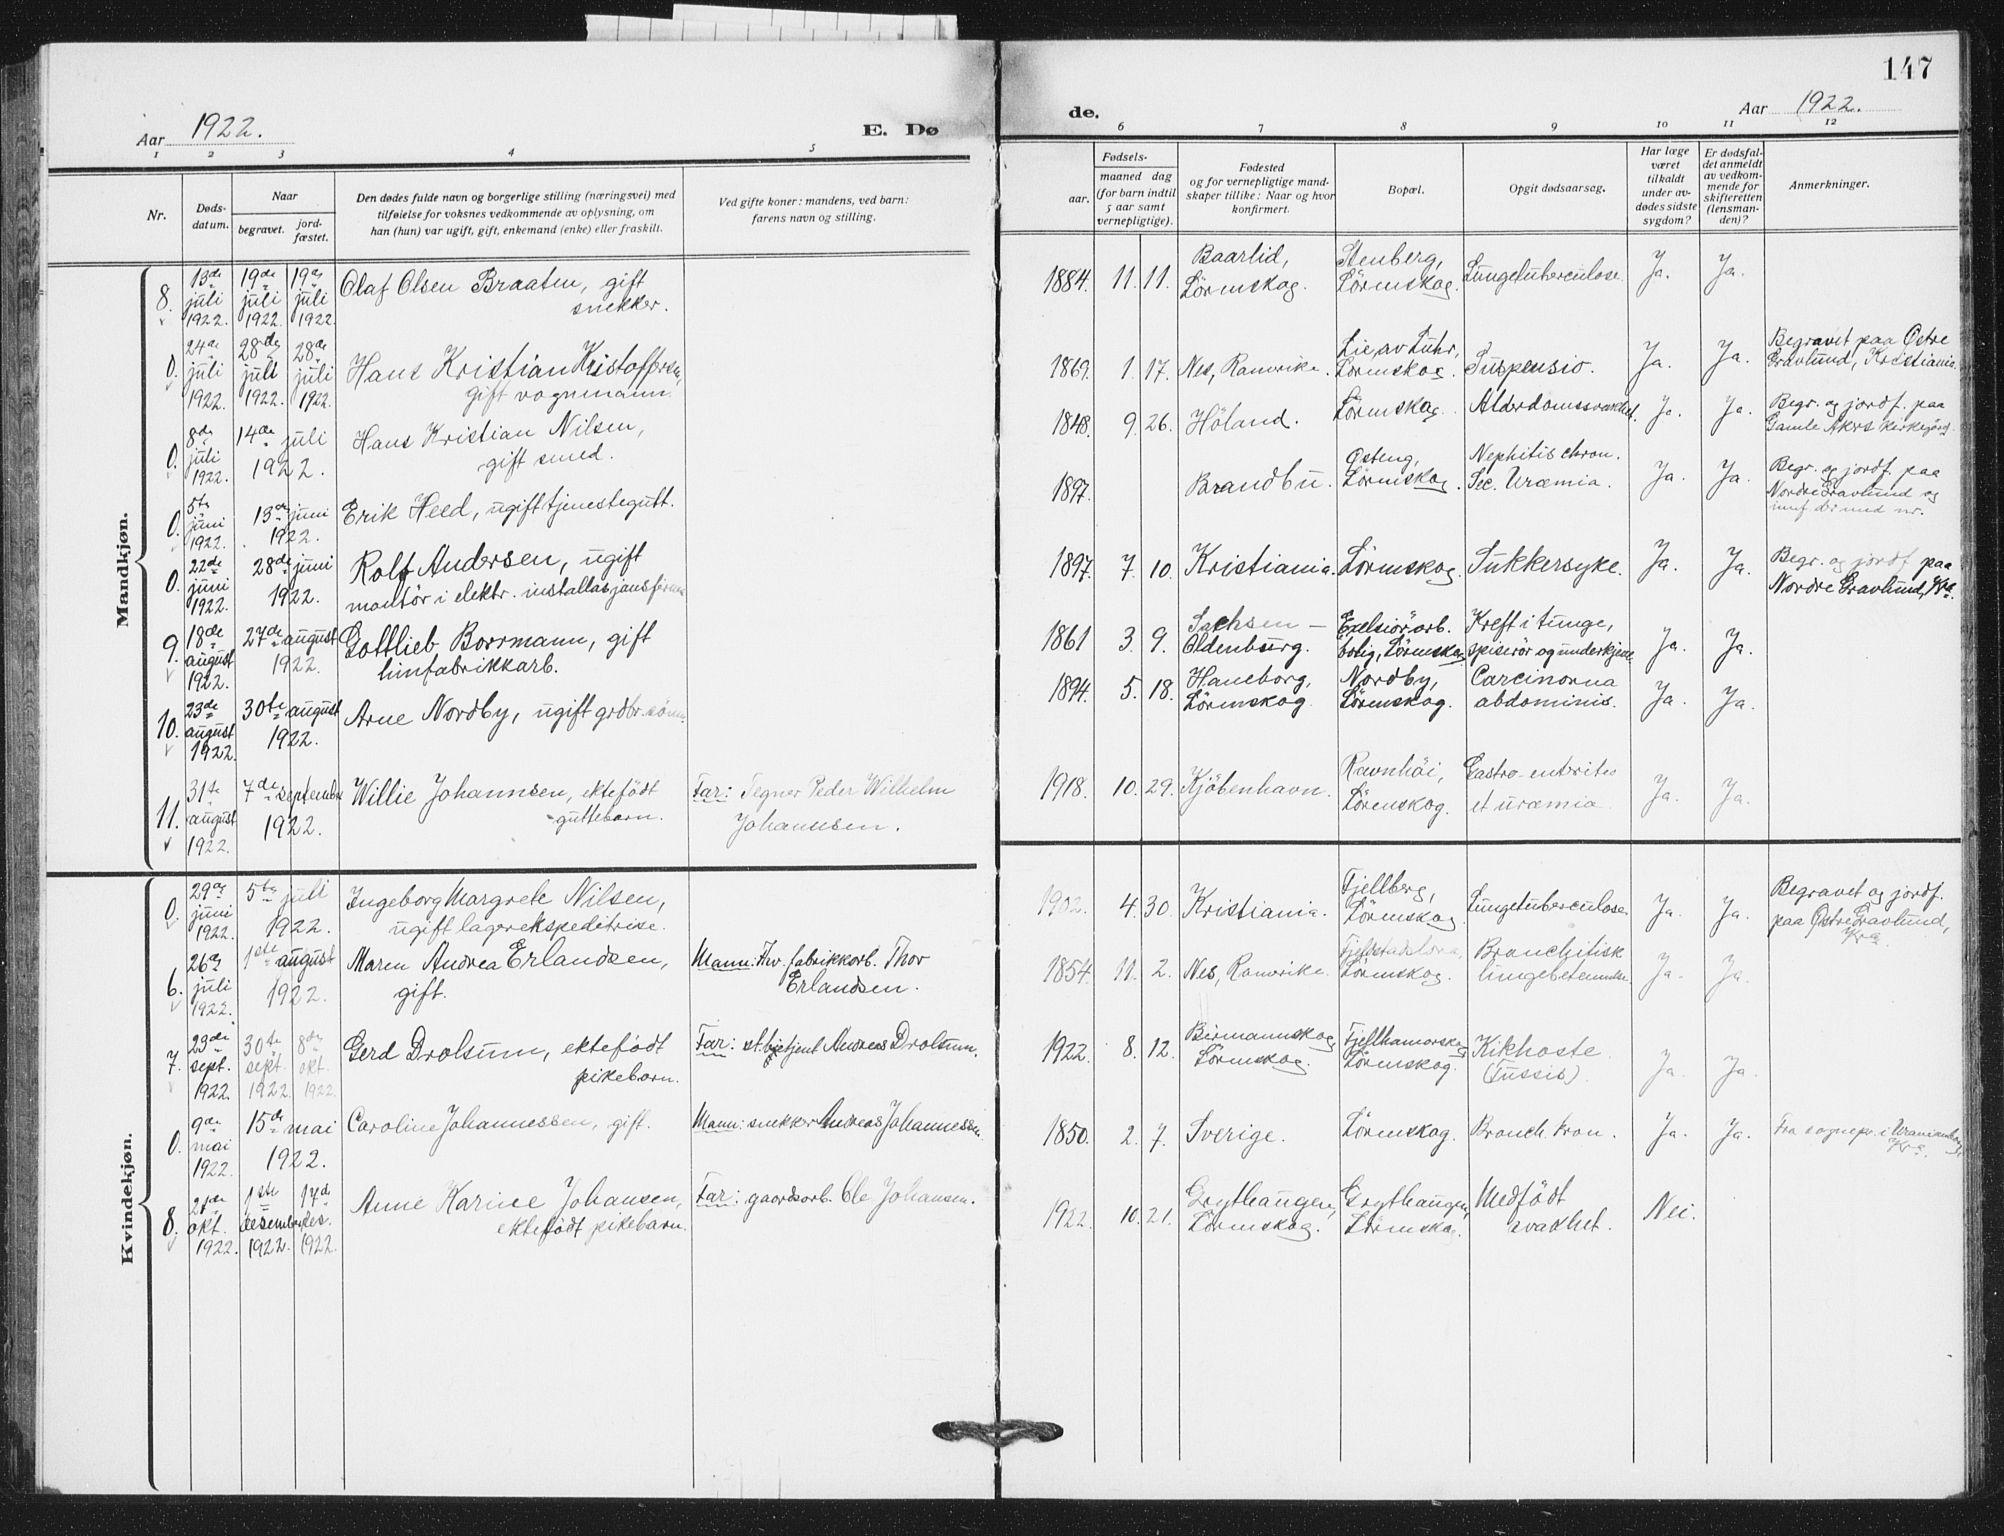 147
Aar 1922.
E. Dø
de.
Aar 1922.
1 2 3 4 5
6 7 8 9 10 11 12
Nr.
Døds-
datum.
Naar
begravet.
jord-
fæstet.
Den dødes fulde navn og borgerlige stilling (næringsvei) med
tilføielse for voksnes vedkommende av oplysning, om
han (hun) var ugift, gift, enkemand (enke) eller fraskilt.
Ved gifte koner: mandens, ved barn:
farens navn og stilling.
Fødsels-
aar.
maaned dag
(for barn indtil
5 aar samt
vernepligtige).
Fødested
og for vernepligtige mand-
skaper tillike: Naar og hvor
konfirmert.
Bopæl.
Opgit dødsaarsag.
Har læge
været
tilkaldt
under av-
dødes sidste
sygdom?
Er dødsfal-
det anmeldt
av vedkom-
mende for
skifteretten
(lensman-
den)?
Anmerkninger.
Mandkjøn.
8.
13de juli 1922.
19de juli 1922.
19de juli 1922.
Olaf Olsen Braaten, gift
snekker.
1884. 11. 11.
Baarlid,
Lörenskog.
Stenberg,
Lörenskog.
Lungetuberculose.
Ja. Ja.
0.
24de juli 1922.
28de juli 1922.
28de juli 1922.
Hans Kristian Kristoffersen,
gift vognmann.
1869. 1. 17.
Nes, Romerike.
Lie, av Luhr,
Lörenskog.
Suspensio.
Ja. Ja.
Begravet paa Østre
Gravlund, Kristiania.
0.
8de juli 1922.
14de juli
1922.
Hans Kristian Nilsen,
gift smed.
1848. 9. 26.
Höland.
Lörenskog.
Alderdomssvakhet.
Ja. Ja.
Begr. og jordf. paa
Gamle Akers kirkegård.
0.
5te juni 1922.
13de juni
1922.
Erik Heed, ugift tjenestegutt.
1897.
Brandbu.
Østeng,
Lörenskog.
Nephitis chron.
Sec. Uræmia.
Ja. Ja.
Begr. og jordf. paa
Nordre Gravlund og
0.
22de juni 1922.
28de juni
1922.
Rolf Andersen, ugift
montör i elektr. installasjonsfirma
1897. 7. 10.
Kristiania.
Lörenskog.
Sukkersyke.
Ja. Ja.
Begr. og jordf paa
Nordre Gravlund, Kra.
9.
18de august 1922.
27de august
1922.
Gottlieb Borrmann, gift
limfabrikkarb.
1861 3. 9.
Sachsen –
Oldenburg.
Exelsiör arb.
bolig, Lörenskog
Kreft i tunge,
spiserör og underkjeve.
Ja. Ja.
10.
23de august 1922.
30te august
1922.
Arne Nordby, ugift grdbr.sönn.
1894. 5. 18.
Haneborg,
Lörenskog
Nordby,
Lörenskog.
Carcinoma
abdominis.
Ja. Ja.
11.
31te august 1922.
7de september
1922.
Willie Johannsen, ektefödt
guttebarn.
Far: Tegner Peder Wilhelm
Johannsen.
1918. 10. 29.
Kjöbenhavn.
Ravnhöi,
Lörenskog.
Gastro-enterites
et uræmia.
Ja. Ja.
Kvindekjøn.
0.
29de juni 1922.
5te juli
1922.
Ingeborg Margrete Nilsen,
ugift lagerekspeditrise.
1902. 4. 30.
Kristiania.
Fjellberg,
Lörenskog
Lungetuberculose.
Ja. Ja.
Begravet og jordf.
paa Østre Gravlund,
Kra.
6.
26de juli 1922.
1ste august
1922.
Maren Andrea Erlandsen,
gift.
Mann: Fhv. fabrikkarb. Thor
Erlandsen.
1854. 11. 2.
Nes, Romerike.
Lörenskog.
Bronchitisk
lungebetennelse.
Ja. Ja.
7.
23de sept. 1922.
30te sept. 1922.
8de okt. 1922.
Gerd Drolsum, ektefödt
pikebarn.
Far: st.betjent Andreas Drolsum.
1922. 8. 12.
Birmannskog
Lörenskog.
Fjellhamarskog,
Lörenskog.
Kikhoste
(Tussis).
Ja. Ja.
0.
9de mai 1922.
15de mai
1922.
Caroline Johannessen, gift.
Mann: snekker Andreas Johannessen.
1850. 2. 7.
Sverige.
Lörenskog.
Bronch. kron.
Ja. Ja.
Fra sognepr. i Uranienborg,
Kra.
8.
21de okt. 1922.
1ste desember 1922.
17de des. 1922.
Anne Karine Johansen,
ektefödt pikebarn.
Far: gaardsarb. Ole Johansen.
1922. 10. 21.
Grythaugen,
Lörenskog.
Grythaugen,
Lörenskog.
Medfödt
svakhet.
Nei.